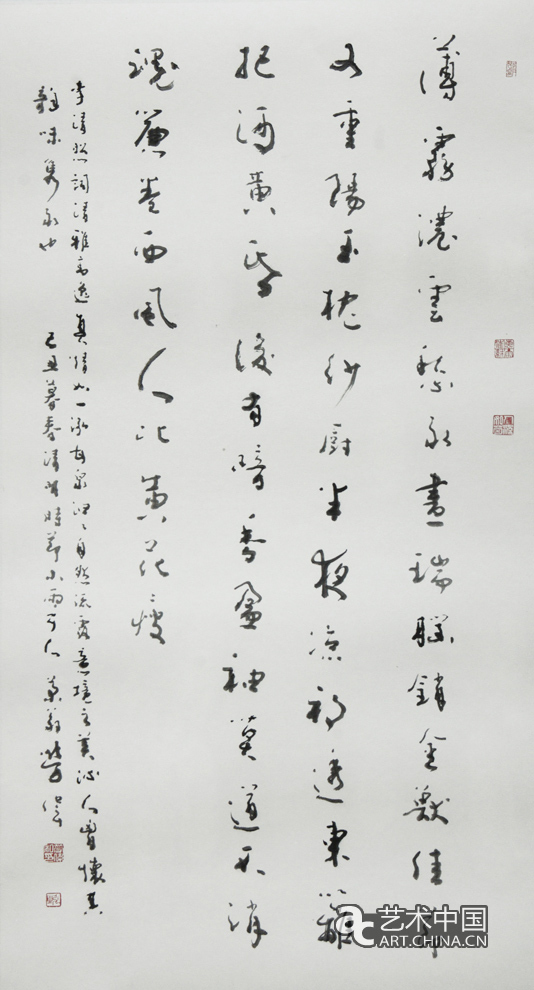 薄霧濃雲愁永晝瑞腦銷金獸佳節
又重陽玉枕紗厨半夜涼初透東籬
把酒黃昏後有暗香盈袖莫道不消
魂簾卷西風人比黃花瘦
李清照詞清雅高逸真情如一泓甘泉汩〻自然流露意境之美沁人胸懷其
韻味雋永也 己丑暮春清明時節小雨可人
艺术中国
ART.CHINA.CN